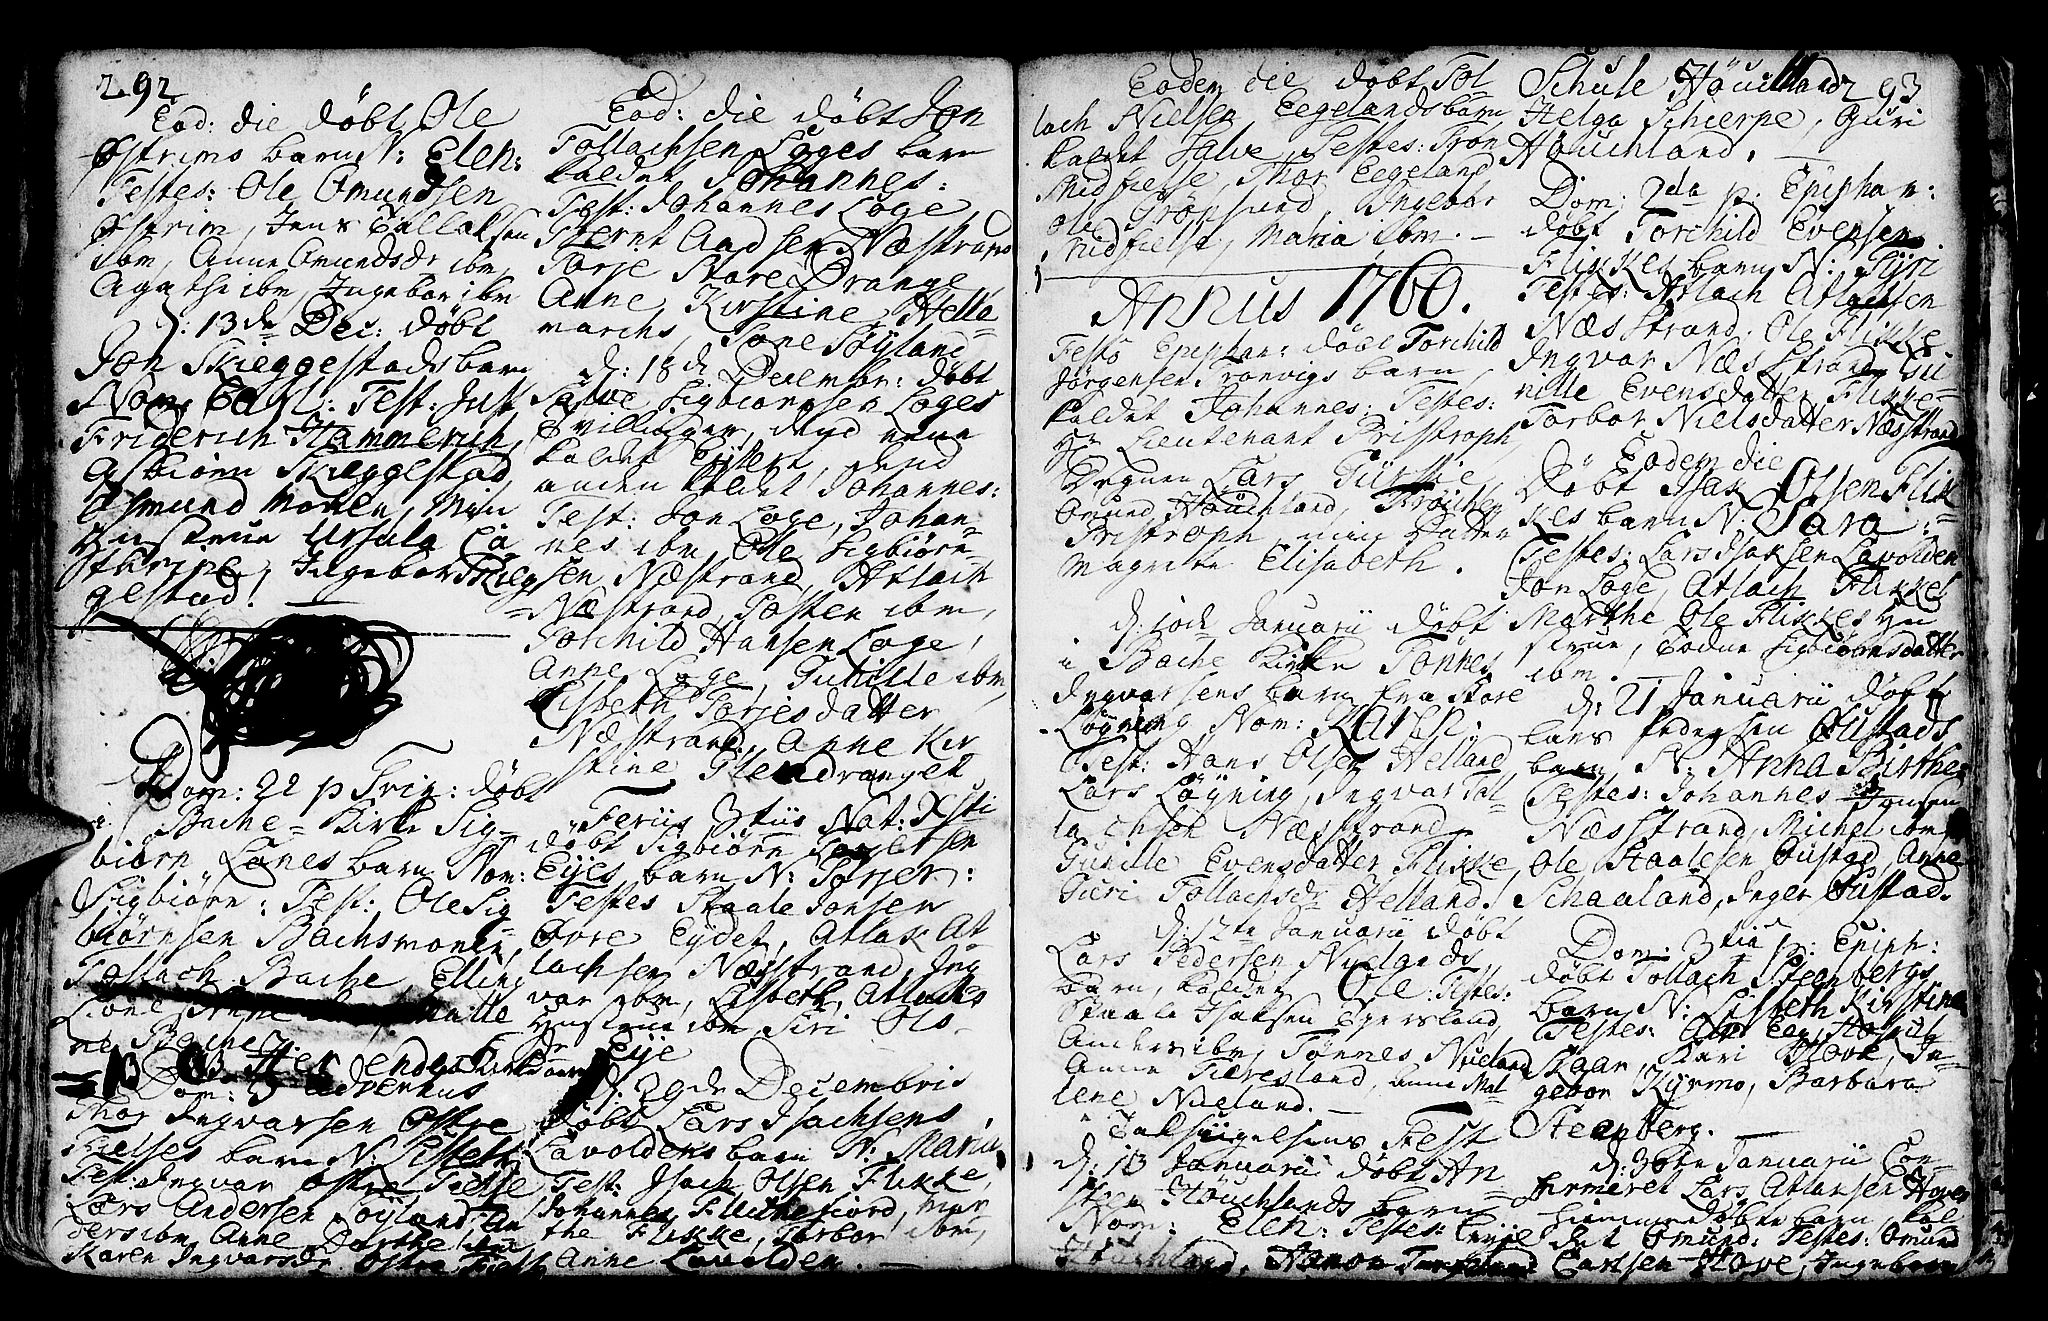 292
Eod: die døbt Ole
Østrims barn N: Elen:
Testes: Ole Omundsen
Østrim, Jens Tallaksen
ibm, Anne Omundsdr ibm,
Agathe ibm, Ingebor ibm
d: 13de Dec: døbt
Jon Skieggestads barn
Nom: Carl: Test: Just
Friderich Hammerich,
Asbiørn Skieggestad,
Osmund Monen, Min
Hustrue Ursula Ca
thrine, Ingebor Skieg
gestad.
Dom: 22 p Trin: døbt
i Bache-Kirke Sig-
biørn Lones barn Nom:
Sigbiørn: Test: Ole Sig
biørnsen Bachsmonen,
Tollach Bache, Elling
Lone, Anne
ne Bache.
Dom: 3 Adventus
Thor Ingvarsen Østre
Fielses barn N: Lisbeth
Test: Ingvar Østre Fielse
Lars Andersen Søyland, An
ders ibm, Anne Dorthe ibm
Karen Ingvarsdr Østre Fielse
Eod: die døbt Jon
Tollachsen Loges barn
kaldet Johannes:
Test: Johannes Loge,
Bernt Aadsen Næstrand
Torje Store Drange,
Anne Kirstine Helle
marchs, Sone Søyland
d: 18de Decembr: døbt
Salve Sigbiørnsen Loges
Tvillinger, dend eene
kaldet Eilert, dend
anden kaldet Johannes:
Test: Jon Loge, Johan-
nes ibm, Ole Sigbiørn
sen Næstrand, Atlach
Næstrand, Tosten ibm,
Torchild Hansen Loge,
Anne Loge, Gunilde ibm,
Lisbeth Torjesdatter
Næstrand, Anne Kir
stine Steendranget
Feriis 3tiis Nat: Xsti
døbt Sigbiørn Torjersen
Eijes barn N: Torjer:
Testes Staale Jonsen
Øvre Eydet, Atlak At-
lachsen Næsstrand, Ing
var ibm, Lisbeth Atlachs
Hustrue ibm Siri Ols-
dr Eije
d: 29de Decembris
døbt Lars Isachsens
Lavoldens barn N: Maria,
Test: Isach Olsen Flikke,
Johannes Fluchefiord, Mar
the Flikke, Torbor ibm,
Anne Lavolden. —
293
Eodem die døbt Tol
lach Nielsen Eegelands barn
kaldet Salve, Testes: Tron
Midfielse, Thor Eegeland
Ole Frøysund, Ingebor
Midfielse, Maria ibm. —
Annus 1760.
Festo Epiphan: døbt Torchild
Jørgensen Tronvigs barn,
kaldet Johannes: Testes:
Hr Lieutenant Pristroph,
Degnen Lars
Omund Høuchland, Frøichen
Pristroph, min Datter
Magrete Elisabeth.
d: 10de Januarii døbt
i Bache Kirke Tønnes
Ingvarsens barn fra Store
Løgning Nom: Karen.
Test: Hans Olsen Helland,
Lars Løgning, Ingvar Tal
lachsen Næsstrand,
Gunille Evensdatter Flikke,
Siri Tollachsdr Helland.
d: 12te Januarii døbt
Lars Pedersen Nuelands
barn, kaldet Ole: Testes:
Staale Isaksen Egersland,
Anders ibm, Tønnes Nueland
Anne Fieresland, Anne Mal
lene Nueland. —
Taksigelsens Fest
d: 13 Januarii døbt An
steen Høuchlands barn
Nom: Elen: Testes: Eije
Høuchland, Aanon
Schule Høuchland
Helga Schierpe, Guri
Høuchland. —
Dom: 2da p: Epiphan:
døbt Torchild Evensen
Flikkes barn N: Siri
Testes: Atlach Atlachsen
Næsstrand, Ole Flikke
Ingvar Næsstrand, Gu
nille Evensdatter Flikke-
Torbor Nielsdatter Næsstrand
Eodem die
Døbt Isak Olsen Flik
kes barn N: Sara:
Testes: Lars Isaksen Lavolden
Jon Loge, Atlach Flikke
Marthe Ole Flikkes Hu
strue, Todne Sigbiørnsdatter
ibm.
d: 21 Januarii døbt
Lars Pedersen Øustads
barn N: Anna Birthe
Testes: Johannes Jonsen
Næsstrand, Michel ibm
Ole Staalesen Øustad, Anne
Schaaland, Inger Øustad.
Dom: 3tia p: Epiph:
døbt Tollach Steenbergs
barn N: Lisbeth Kirstine
Testes:
Skaar, Kari Hove, In-
gebor Kyrmo, Barbara
Steenberg. —
d: 30te Januarii Con-
firmeret Lars Atlaksen Hoves
hiemmedøbte barn, kal-
det Omund: Testes: Omund
Carlsen Hove, Ingebor